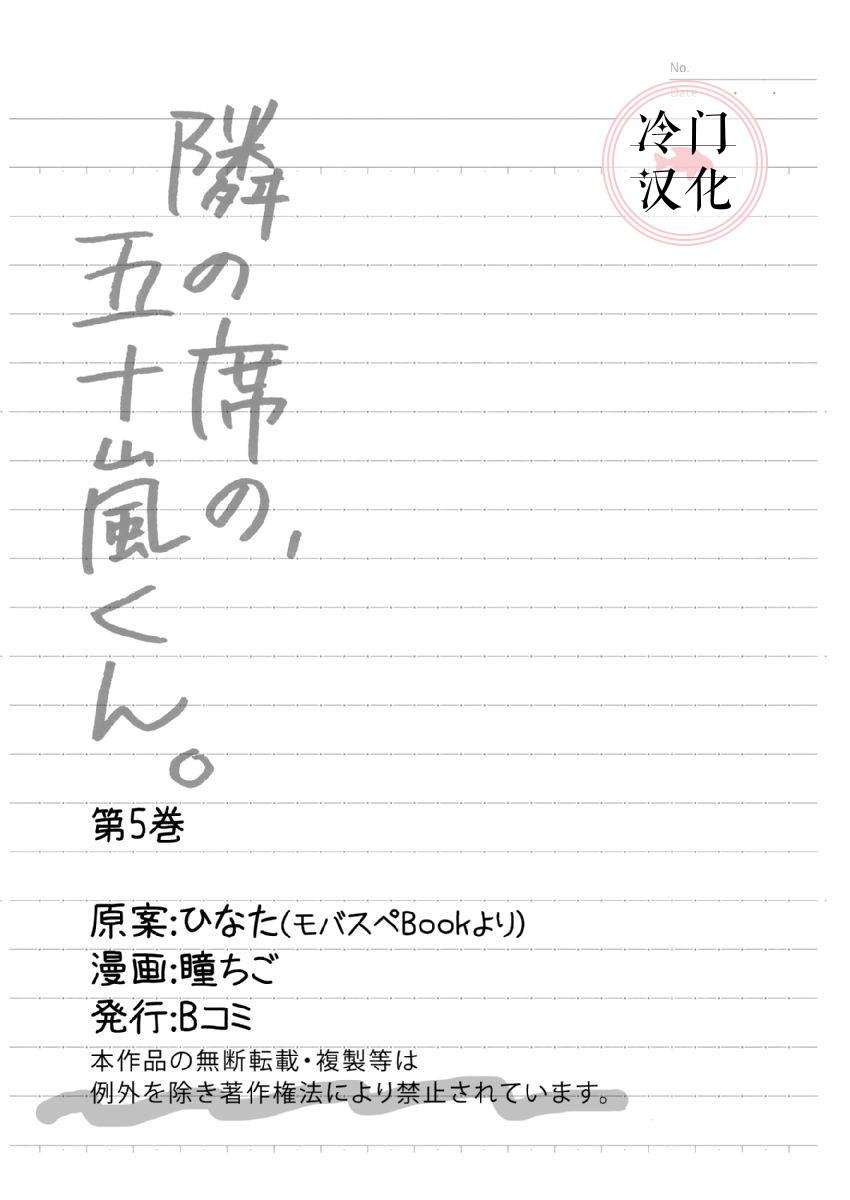 No.
Date
冷门
汉化
隣の席の、
五十嵐くん。
第5巻
原案:ひなた(モバスペBookより)
漫画:瞳ちご
発行:Bコミ
本作品の無断転載・複製等は
例外を除き著作権法により禁止されています。